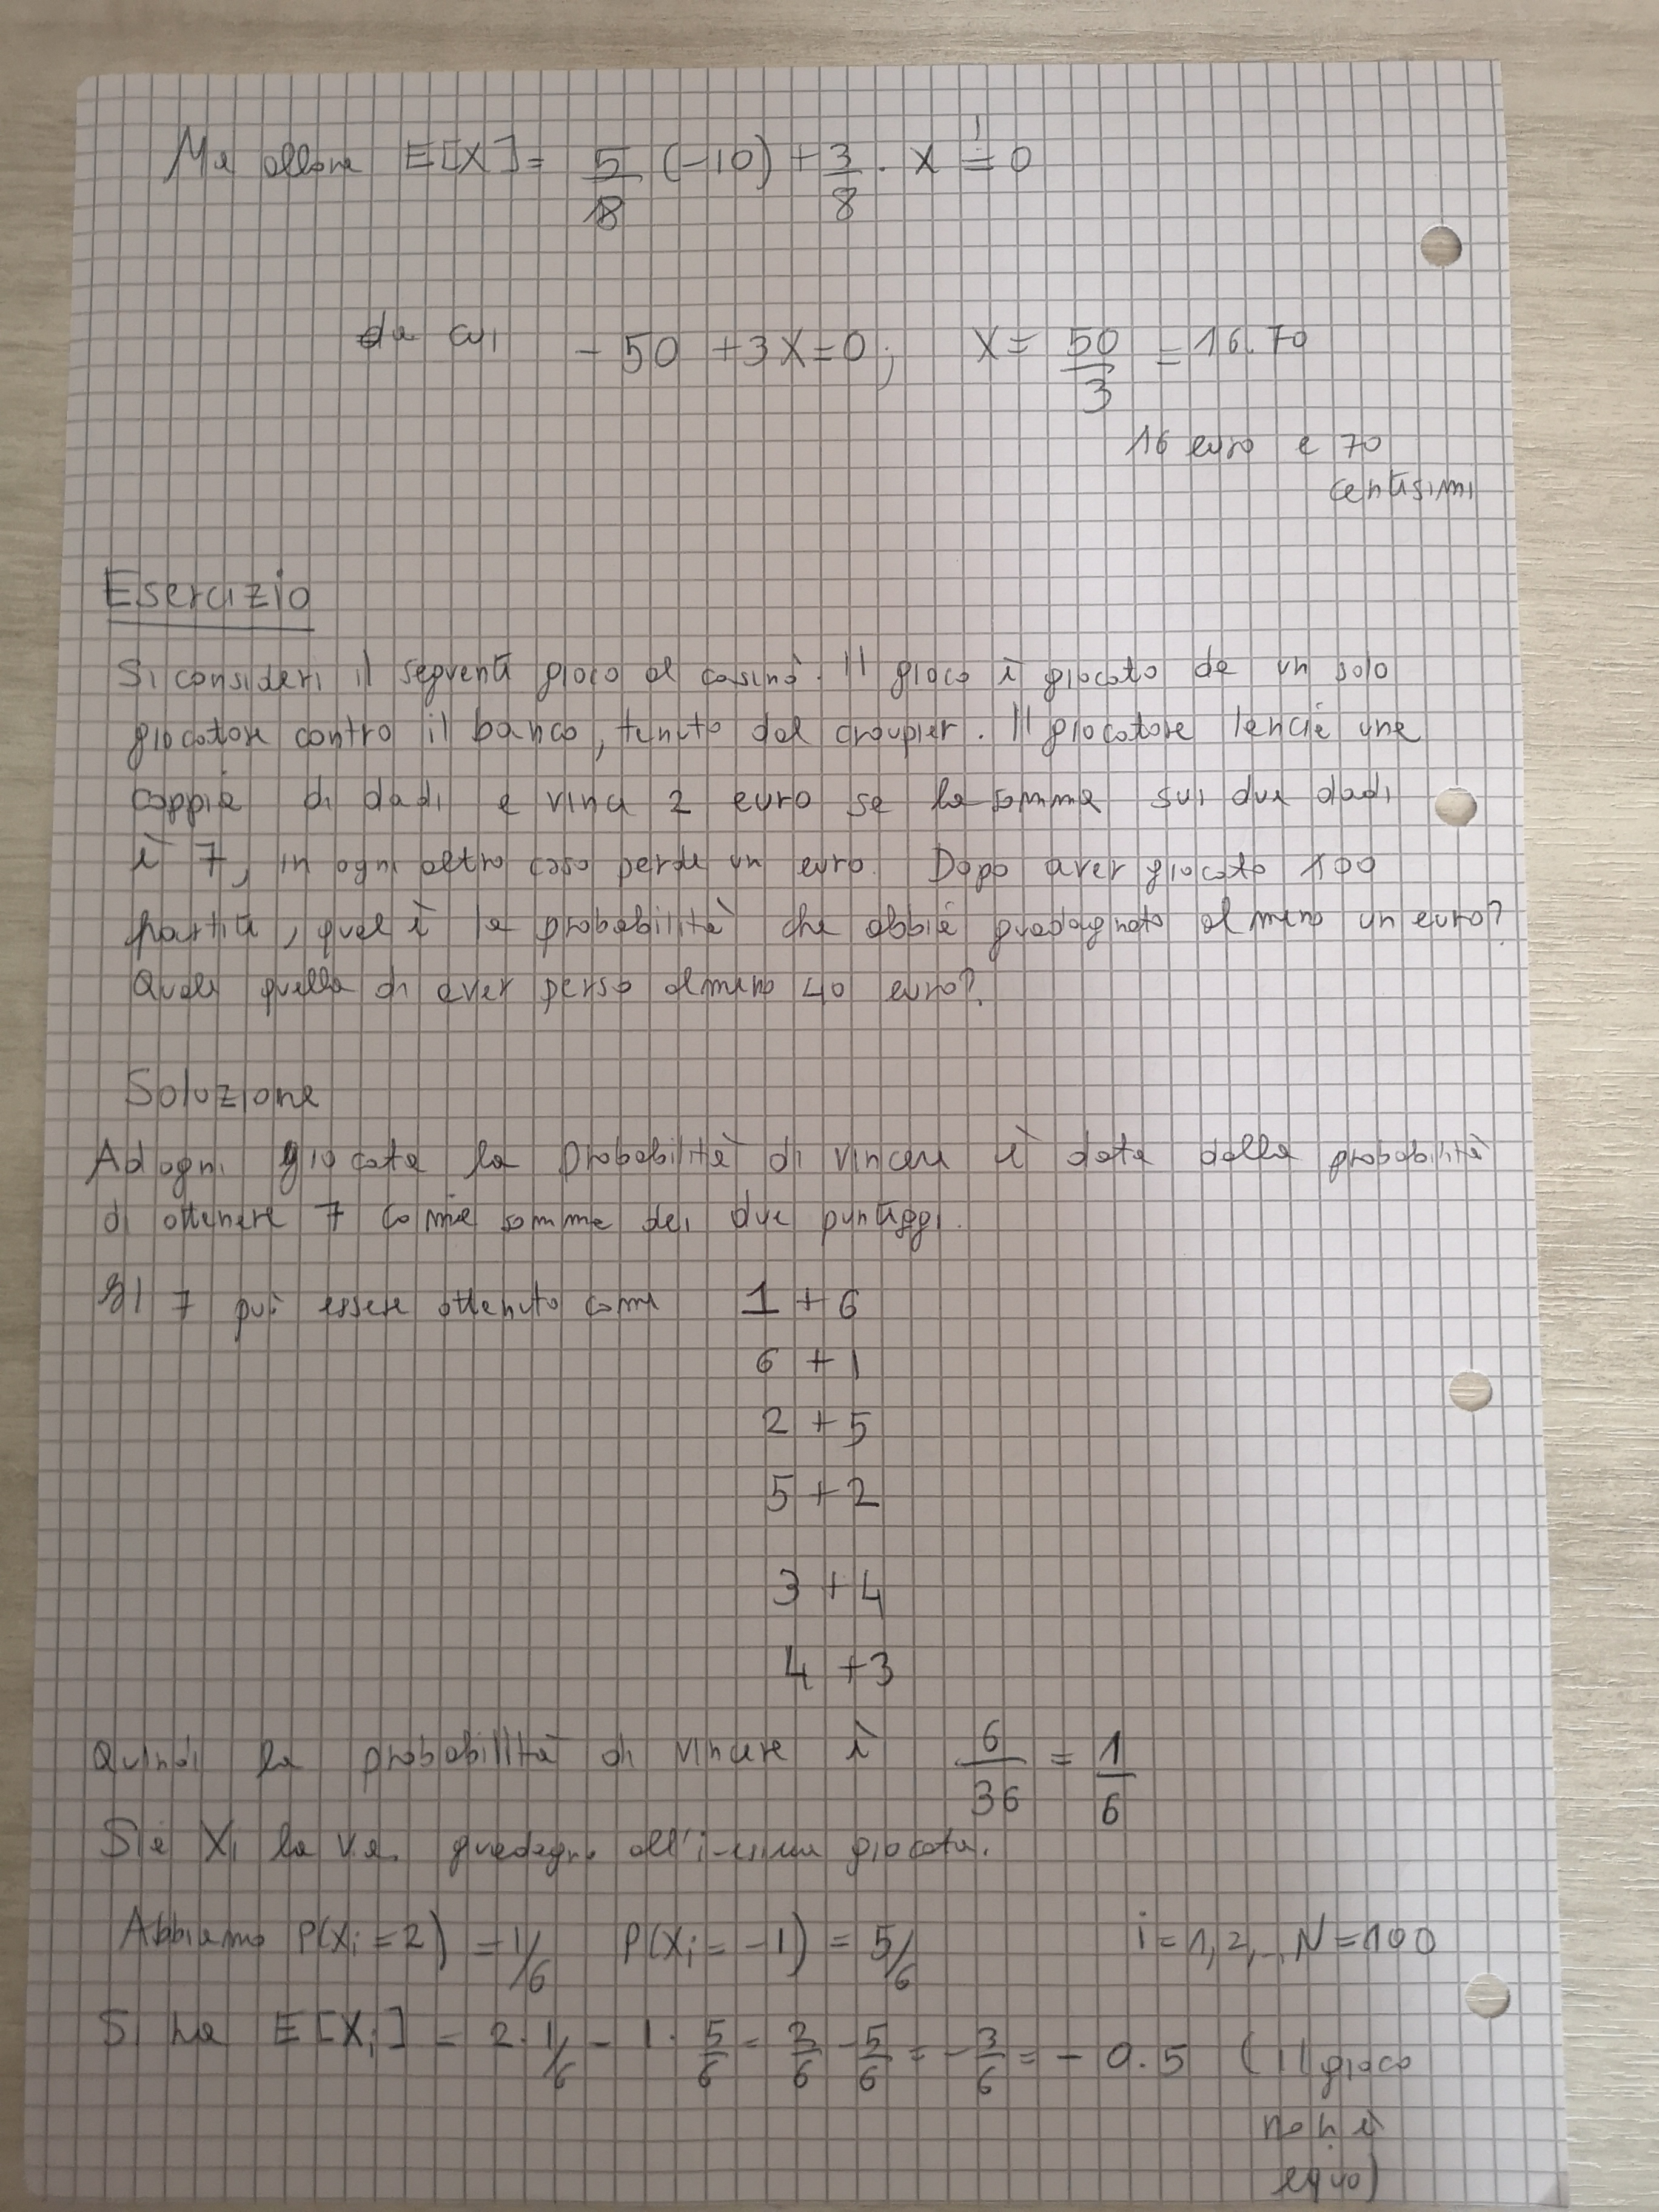 Ma allora E[X] = 5/8 (-10) + 3/8 · x != 0
da cui -50 + 3x = 0; x = 50/3 = 16.70
16 euro e 70
centesimi
Esercizio
Si consideri il seguente gioco al casinò. Il gioco è giocato da un solo
giocatore contro il banco, tenuto dal croupier. Il giocatore lancia una
coppia di dadi e vince 2 euro se la somma sui due dadi
è 7, in ogni altro caso perde un euro. Dopo aver giocato 100
partite, qual è la probabilità che abbia guadagnato almeno un euro?
Quale quella di aver perso almeno 40 euro?
Soluzione
Ad ogni giocata la probabilità di vincere è data dalla probabilità
di ottenere 7 come somma dei due punteggi.
Il 7 può essere ottenuto come 1 + 6
6 + 1
2 + 5
5 + 2
3 + 4
4 + 3
Quindi la probabilità di vincere è 6/36 = 1/6
Sia Xi la v.a. guadagno all'i-esima giocata.
Abbiamo P(Xi = 2) = 1/6 P(Xi = -1) = 5/6 i = 1, 2, .. N = 100
Si ha E[Xi] = 2 · 1/6 - 1 · 5/6 = 2/6 - 5/6 = - 3/6 = - 0.5 (Il gioco
non è
equo)